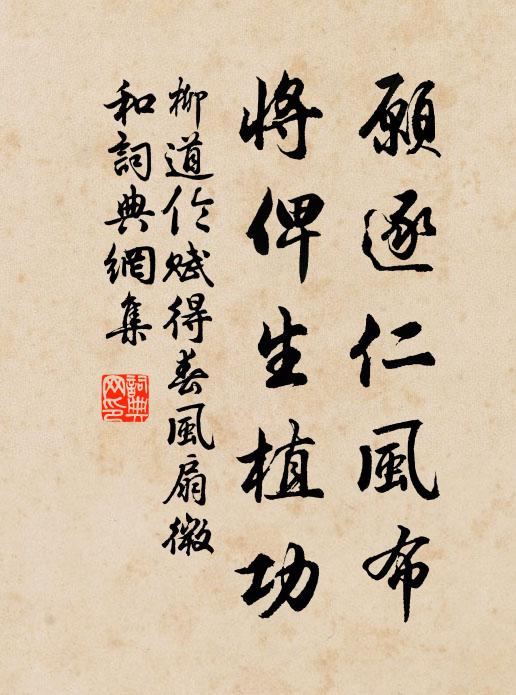 願逐仁風布
將俾生植功
柳道伦賦得春風扇微
和詞典網集
詞典
网印